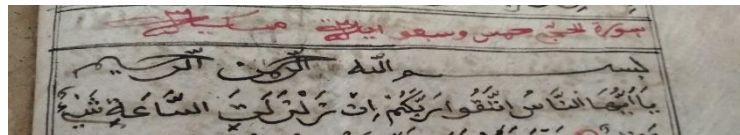 سورة الحج خمس وسبعو اية
بسم الله الرحمن الرحيم
يا أيها الناس اتقوا ربكم إن زلزلت الساعة شيء